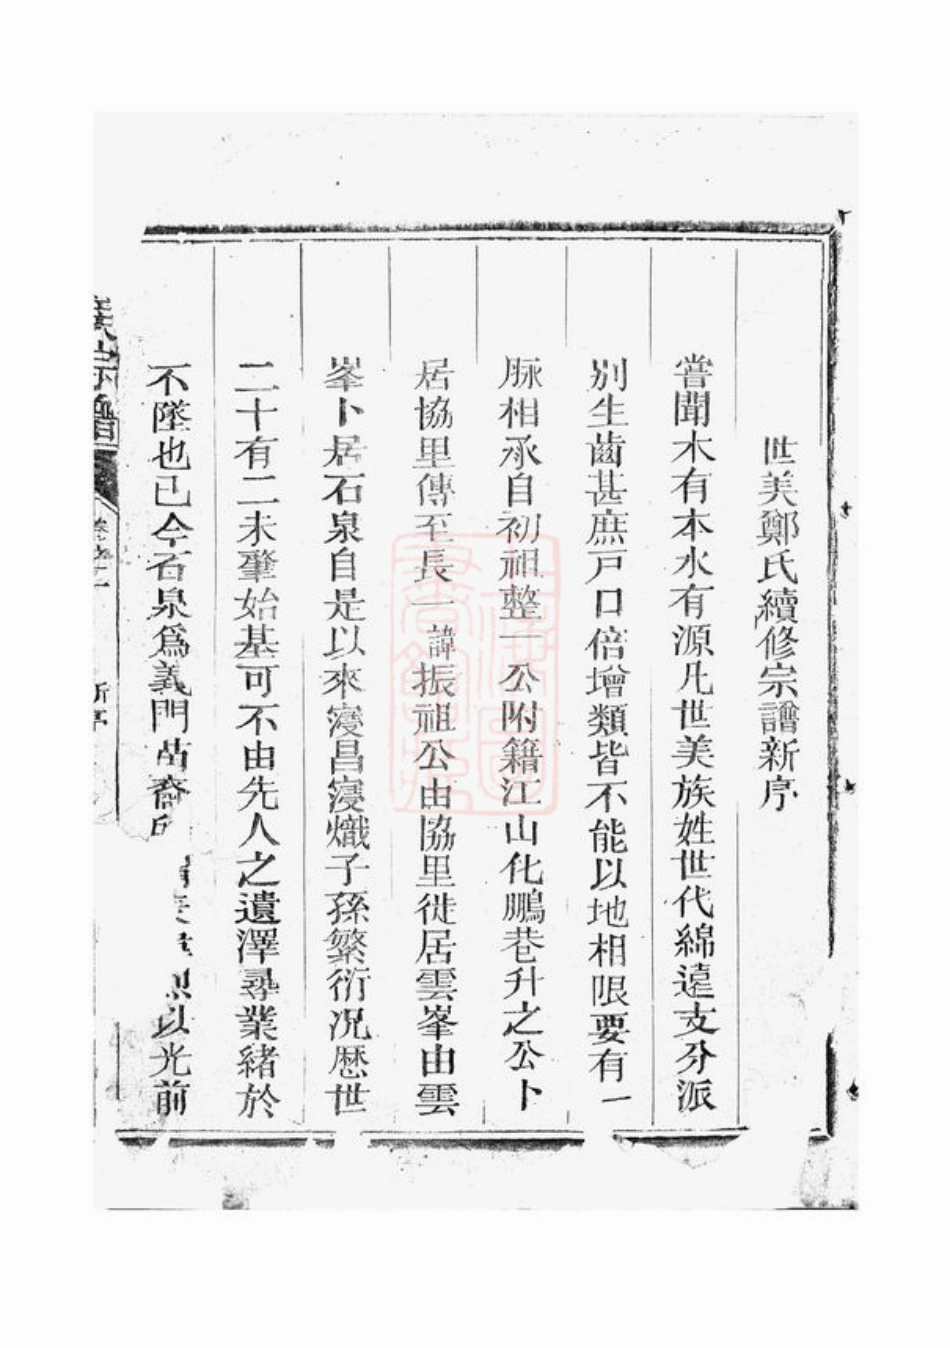 世美鄭氏續修宗譜新序
嘗聞木有本水有源凡世美族姓世代綿遠支分派
別生齒甚庶戸口倍增類皆不能以地相限要有一
脉相承自初祖整一公附籍江山化鵬巷升之公卜
居協里傳至長一諱振祖公由協里徙居雲峯由雲
峯卜居石泉自是以來寖昌寖熾子孫繁衍况歷世
二十有二未肇始基可不由先人之遺澤尋業緒於
不墜也已今石泉爲義門苗裔以光前
宗譜
新序